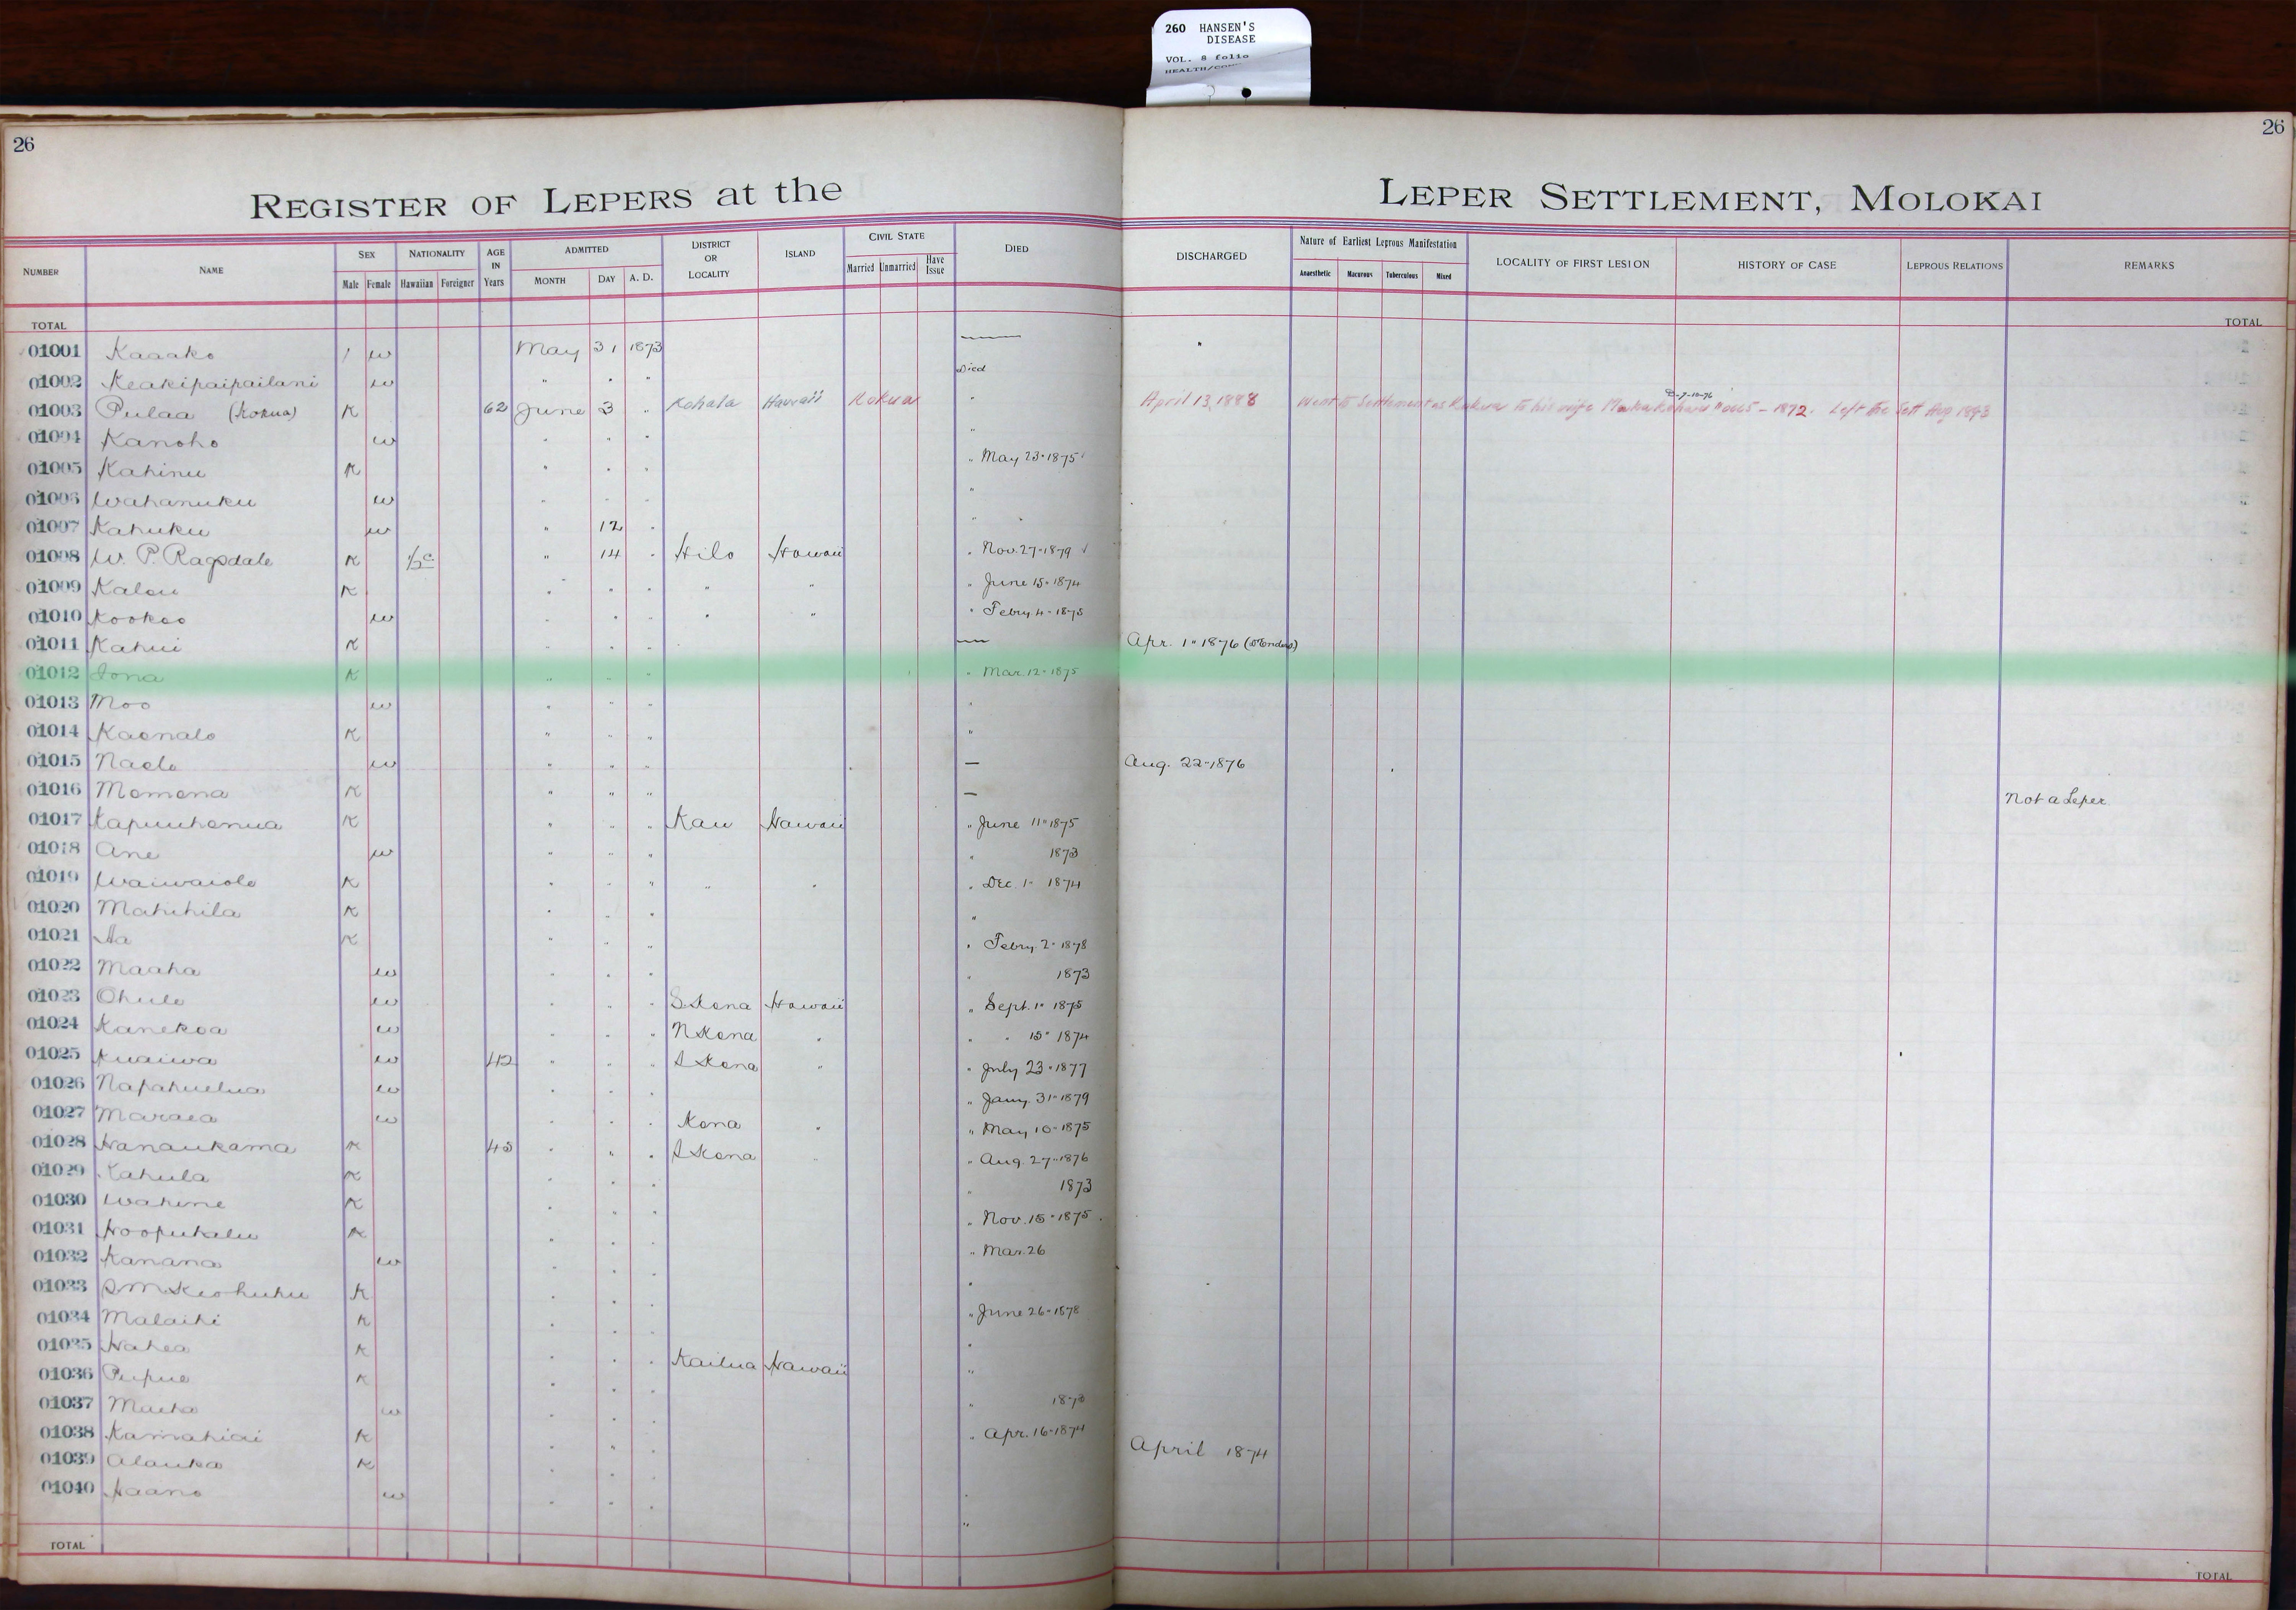 260 HANSEN'S
DISEASE
VOL. 8 folio
26
26
REGISTER OF LEPERS at the LEPER SETTLEMENT, MOLOKAI
NUMBER NAME SEX NATIONALITY AGE IN Years ADMITTED DISTRICT OR LOCALITY ISLAND CIVIL STATE DIED DISCHARGED Nature of Earliest Leprous Manifestation LOCALITY OF FIRST LESION HISTORY OF CASE LEPROUS RELATIONS REMARKS
Male Female Hawaiian Foreigner MONTH DAY A. D. Married Unmarried Have Issue Anaesthetic Macurous Tuberculous Mixed
TOTAL TOTAL
01001 Kaaako / w May 31 1873
01002 Keakipaipailani w " " " Died
01003 Pulaa (Kokua) K 62 June 3 " Kohala Hawaii Kokua " April 13, 1888 Went to Settlement as Kokua to his wife - 1872. Left the Sett Aug 1893
01004 Kanoho w " " " "
01005 Kahinu K " " " " May 23 " 1875
01006 Wahanuku w " " " "
01007 Kahuku w " 12 " "
01008 W. P. Ragsdale K 1/2 c " 14 " Hilo Hawaii " Nov. 27 " 1879
01009 Kalou K " " " " " " June 15 " 1874
01010 Kookoo w " " " " " " Febry 4 - 1875
01011 Kahui K " " " — Apr. 1 " 1876
01012 Iona K " " " " Mar. 12 " 1875
01013 Moo w " " " "
01014 Kaonalo K " " " "
01015 Naelo w " " " — Aug. 22 - 1876
01016 Momona K " " " — Not a Leper
01017 Kapuuhonua K " " " Kau Hawaii " June 11 " 1875
01018 Ane w " " " " 1873
01019 Waiwaiole K " " " " " " Dec. 1 " 1874
01020 Mahihila K " " " "
01021 Aa K " " " " Febry. 2 " 1878
01022 Maaha w " " " " 1873
01023 Ohule w " " " S. Kona Hawaii " Sept. 1 " 1875
01024 Kanekoa w " " " N Kona " " " 15 " 1874
01025 Kuaiwa w 42 " " " S Kona " " July 23 " 1877
01026 Napahuelua w " " " " Jany. 31 " 1879
01027 Maraea w " " " Kona " " May 10 " 1875
01028 Hanaukama K 45 " " " S Kona " " Aug. 27 " 1876
01029 Kahula K " " " " 1873
01030 Wahine K " " " " Nov. 15 " 1875
01031 Hoopukalu K " " " " Mar. 26
01032 Kanana w " " " "
01033 S M Keohuhu K " " " " June 26 - 1878
01034 Malaihi K " " " "
01035 Hahea K " " " Kailua Hawaii "
01036 Pupue K " " " " 1873
01037 Maeha w " " " " Apr. 16 - 1874
01038 Kamahiai K " " " April 1874
01039 Alauka K " " " "
01040 Haano w " " " "
TOTAL TOTAL